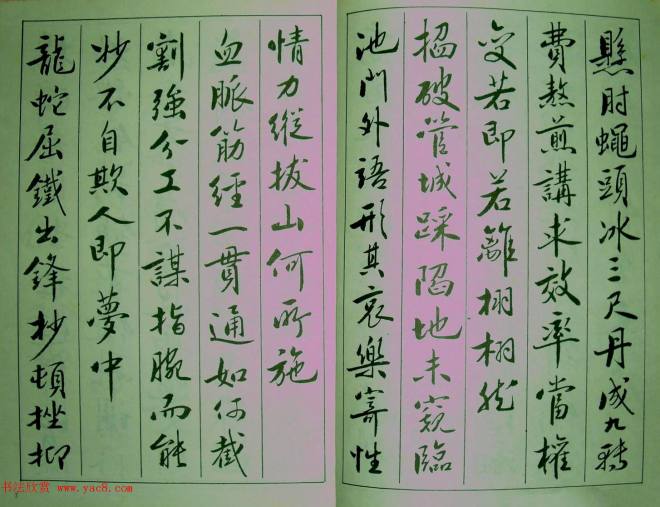 懸肘蠅頭冰三尺丹成九轉
費熬煎講求效率當權
變若即若離栩栩然
搯破管城踩陷地未窺臨
池門外語形其哀樂寄性
情力縱拔山何所施
血脈筋經一貫通如何截
割強分工不謀指腕而能
妙不自欺人即夢中
龍蛇屈鐵出鋒抄頓挫抑
书法欣赏 www.yac8.com